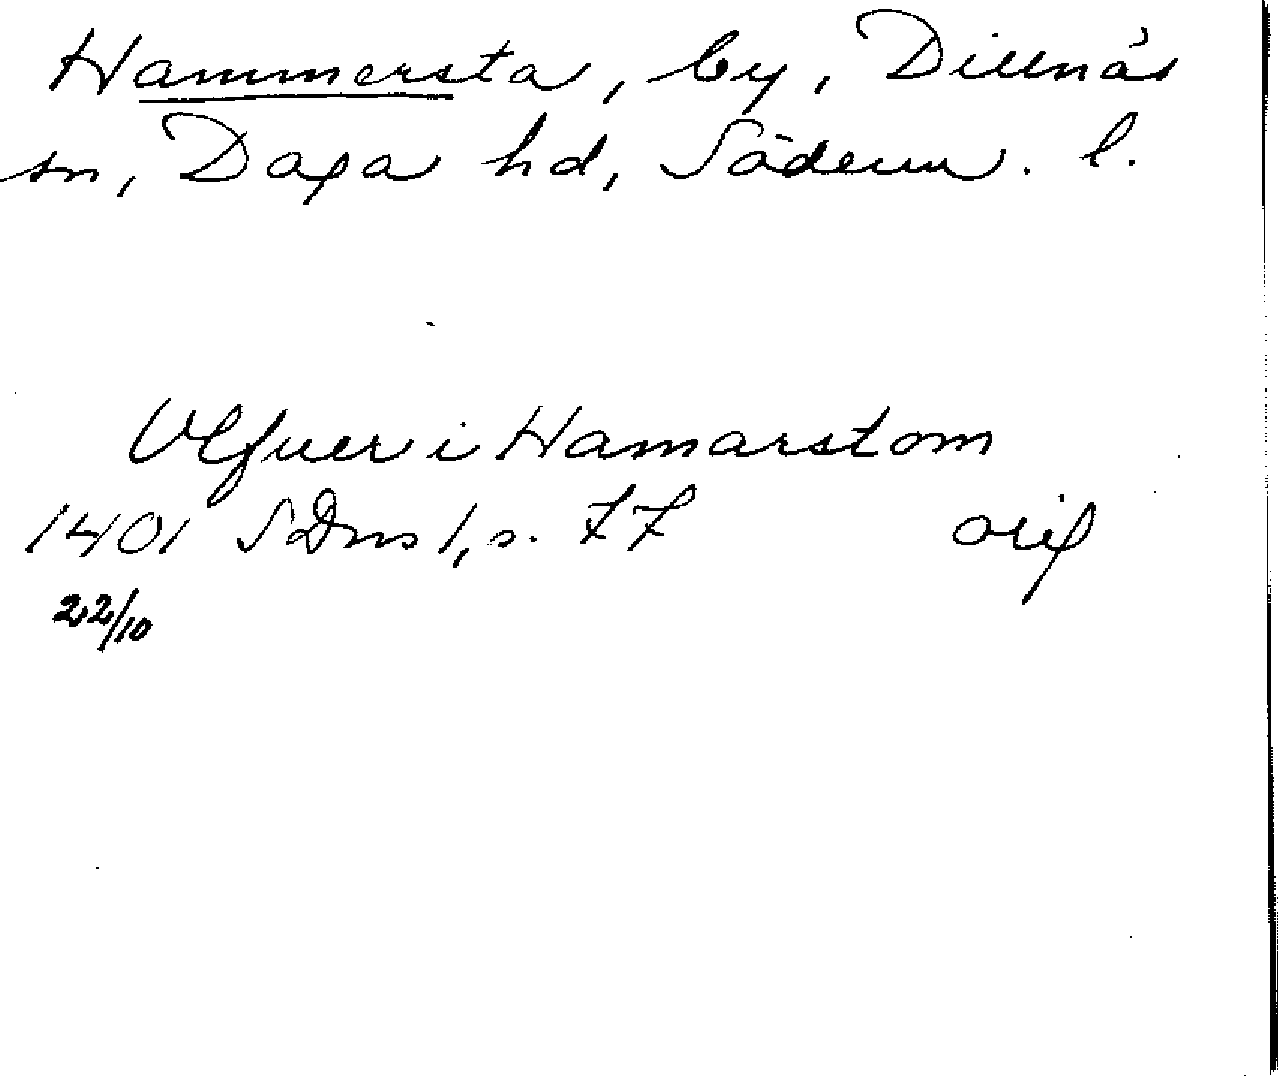 Hammersta, by, Dillnäs
sn, Daga hd, Söderm. l.
Vlfuer i Hamarstom
1401 SDns 1, s. 77 orig
22/10